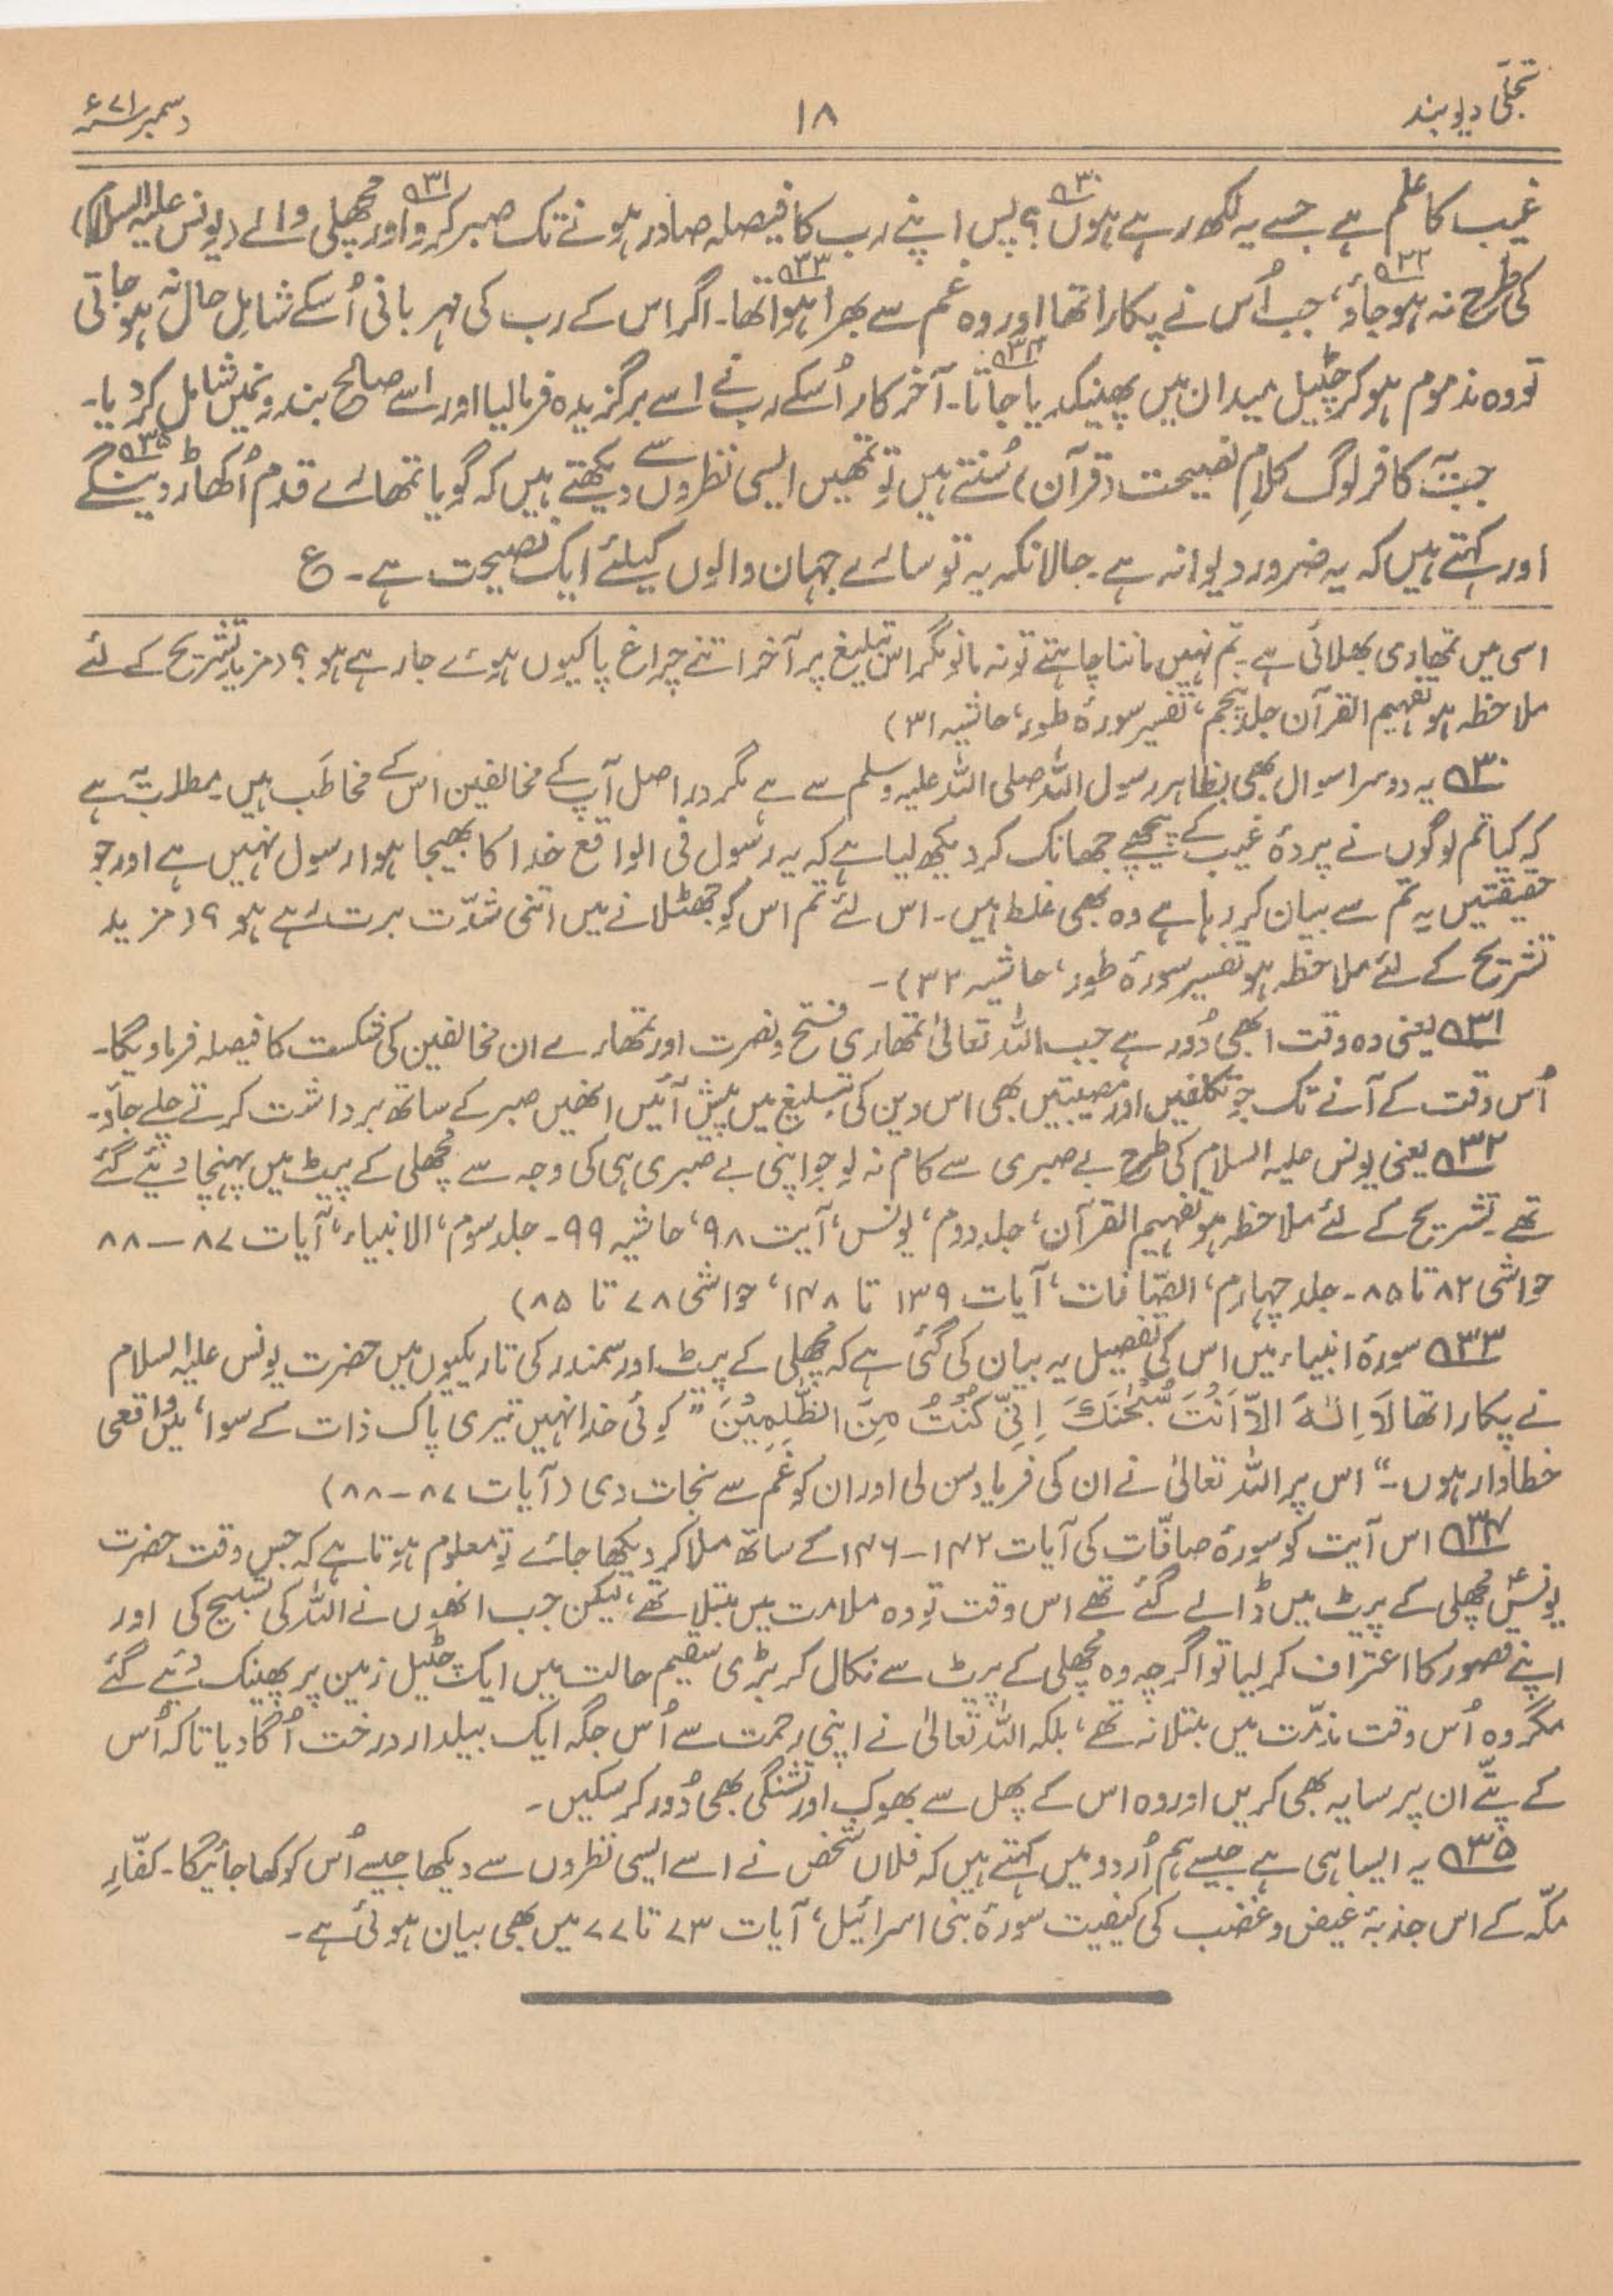 تجلّی دیوبند
۱۸
دسمبر ۷۱ء
غیب کا علم ہے جسے یہ لکھ رہے ہوں؟ ۳۰ پس اپنے رب کا فیصلہ صادر ہونے تک صبر کرو ۳۱ اور مچھلی والے (یونس علیہ السلام)
کی طرح نہ ہو جاؤ، ۳۲ جب اُس نے پکارا تھا اور وہ غم سے بھرا ہوا تھا۔ ۳۳ اگر اس کے رب کی مہربانی اُسکے شاملِ حال نہ ہو جاتی
تو وہ مذموم ہو کر چٹیل میدان میں پھینکدیا جاتا۔ ۳۴ آخر کار اُسکے رب نے اسے برگزیدہ فرما لیا اور اسے صالح بندونمیں شامل کر دیا۔
جب یہ کافر لوگ کلامِ نصیحت (قرآن) سُنتے ہیں تو تمھیں ایسی نظروں سے دیکھتے ہیں کہ گویا تمھارے قدم اُکھاڑ دینگے ۳۵
اور کہتے ہیں کہ یہ ضرور دیوانہ ہے۔ حالانکہ یہ تو سارے جہان والوں کیلئے ایک نصیحت ہے۔ ع
اسی میں تمھاری بھلائی ہے۔ تم نہیں ماننا چاہتے تو نہ مانو مگر اس تبلیغ پر آخر اتنے چراغ پا کیوں ہوئے جا رہے ہو؟ (مزید تشریح کے لئے
ملاحظہ ہو تفہیم القرآن جلد پنجم، تفسیر سورۂ طور، حاشیہ ۳۱)
۳۰ یہ دوسرا سوال بھی بظاہر رسول اللہ صلی اللہ علیہ وسلم سے ہے مگر دراصل آپ کے مخالفین اس کے مخاطَب ہیں۔ مطلب یہ ہے
کہ کیا تم لوگوں نے پردۂ غیب کے پیچھے جھانک کر دیکھ لیا ہے کہ یہ رسول فی الواقع خدا کا بھیجا ہوا رسول نہیں ہے اور جو
حقیقتیں یہ تم سے بیان کر رہا ہے وہ بھی غلط ہیں۔ اس لئے تم اس کو جھٹلانے میں اتنی شدّت برت رہے ہو؟ (مزید
تشریح کے لئے ملاحظہ ہو تفسیر سورۂ طور، حاشیہ ۳۲)۔
۳۱ یعنی وہ وقت ابھی دُور ہے جب اللہ تعالیٰ تمھاری فتح و نصرت اور تمھارے ان مخالفین کی شکست کا فیصلہ فرماویگا۔
اُس وقت کے آنے تک جو تکلفیں اور مصیبتیں بھی اس دین کی تبلیغ میں پیش آئیں انھیں صبر کے ساتھ برداشت کرتے چلے جاؤ۔
۳۲ یعنی یونس علیہ السلام کی طرح بے صبری سے کام نہ لو جو اپنی بے صبری ہی کی وجہ سے مچھلی کے پیٹ میں پہنچا دیئے گئے
تھے۔ تشریح کے لئے ملاحظہ ہو تفہیم القرآن، جلد دوم، یونس، آیت ۹۸، حاشیہ ۹۹۔ جلد سوم، الانبیاء، آیات ۸۷—۸۸
حواشی ۸۲ تا ۸۵۔ جلد چہارم، الصّافات، آیات ۱۳۹ تا ۱۴۸، حواشی ۷۸ تا ۸۵)
۳۳ سورۂ انبیاء میں اس کی تفصیل یہ بیان کی گئی ہے کہ مچھلی کے پیٹ اور سمندر کی تاریکیوں میں حضرت یونس علیہ السلام
نے پکارا تھا لَآ اِلٰہَ اِلَّآ اَنْتَ سُبْحٰنَکَ اِنِّیْ کُنْتُ مِنَ الظّٰلِمِیْنَ ”کوئی خدا نہیں تیری پاک ذات کے سوا، میں واقعی
خطاوار ہوں۔“ اس پر اللہ تعالیٰ نے ان کی فریاد سن لی اور ان کو غم سے نجات دی (آیات ۸۷—۸۸)
۳۴ اس آیت کو سورۂ صافّات کی آیات ۱۴۲—۱۴۶ کے ساتھ ملا کر دیکھا جائے تو معلوم ہوتا ہے کہ جس وقت حضرت
یونسؑ مچھلی کے پیٹ میں ڈالے گئے تھے اس وقت تو وہ ملامت میں مبتلا تھے، لیکن جب انھوں نے اللہ کی تسبیح کی اور
اپنے قصور کا اعتراف کر لیا تو اگرچہ وہ مچھلی کے پیٹ سے نکال کر بڑی سقیم حالت میں ایک چٹیل زمین پر پھینک دئیے گئے
مگر وہ اُس وقت مذمّت میں مبتلا نہ تھے، بلکہ اللہ تعالیٰ نے اپنی رحمت سے اُس جگہ ایک بیلدار درخت اُگا دیا تاکہ اُس
کے پتّے ان پر سایہ بھی کریں اور وہ اس کے پھل سے بھوک اور تشنگی بھی دُور کر سکیں۔
۳۵ یہ ایسا ہی ہے جیسے ہم اُردو میں کہتے ہیں کہ فلاں شخص نے اسے ایسی نظروں سے دیکھا جیسے اُس کو کھا جائیگا۔ کفّارِ
مکّہ کے اس جذبۂ غیض و غضب کی کیفیت سورۂ بنی اسرائیل، آیات ۷۳ تا ۷۷ میں بھی بیان ہوئی ہے۔